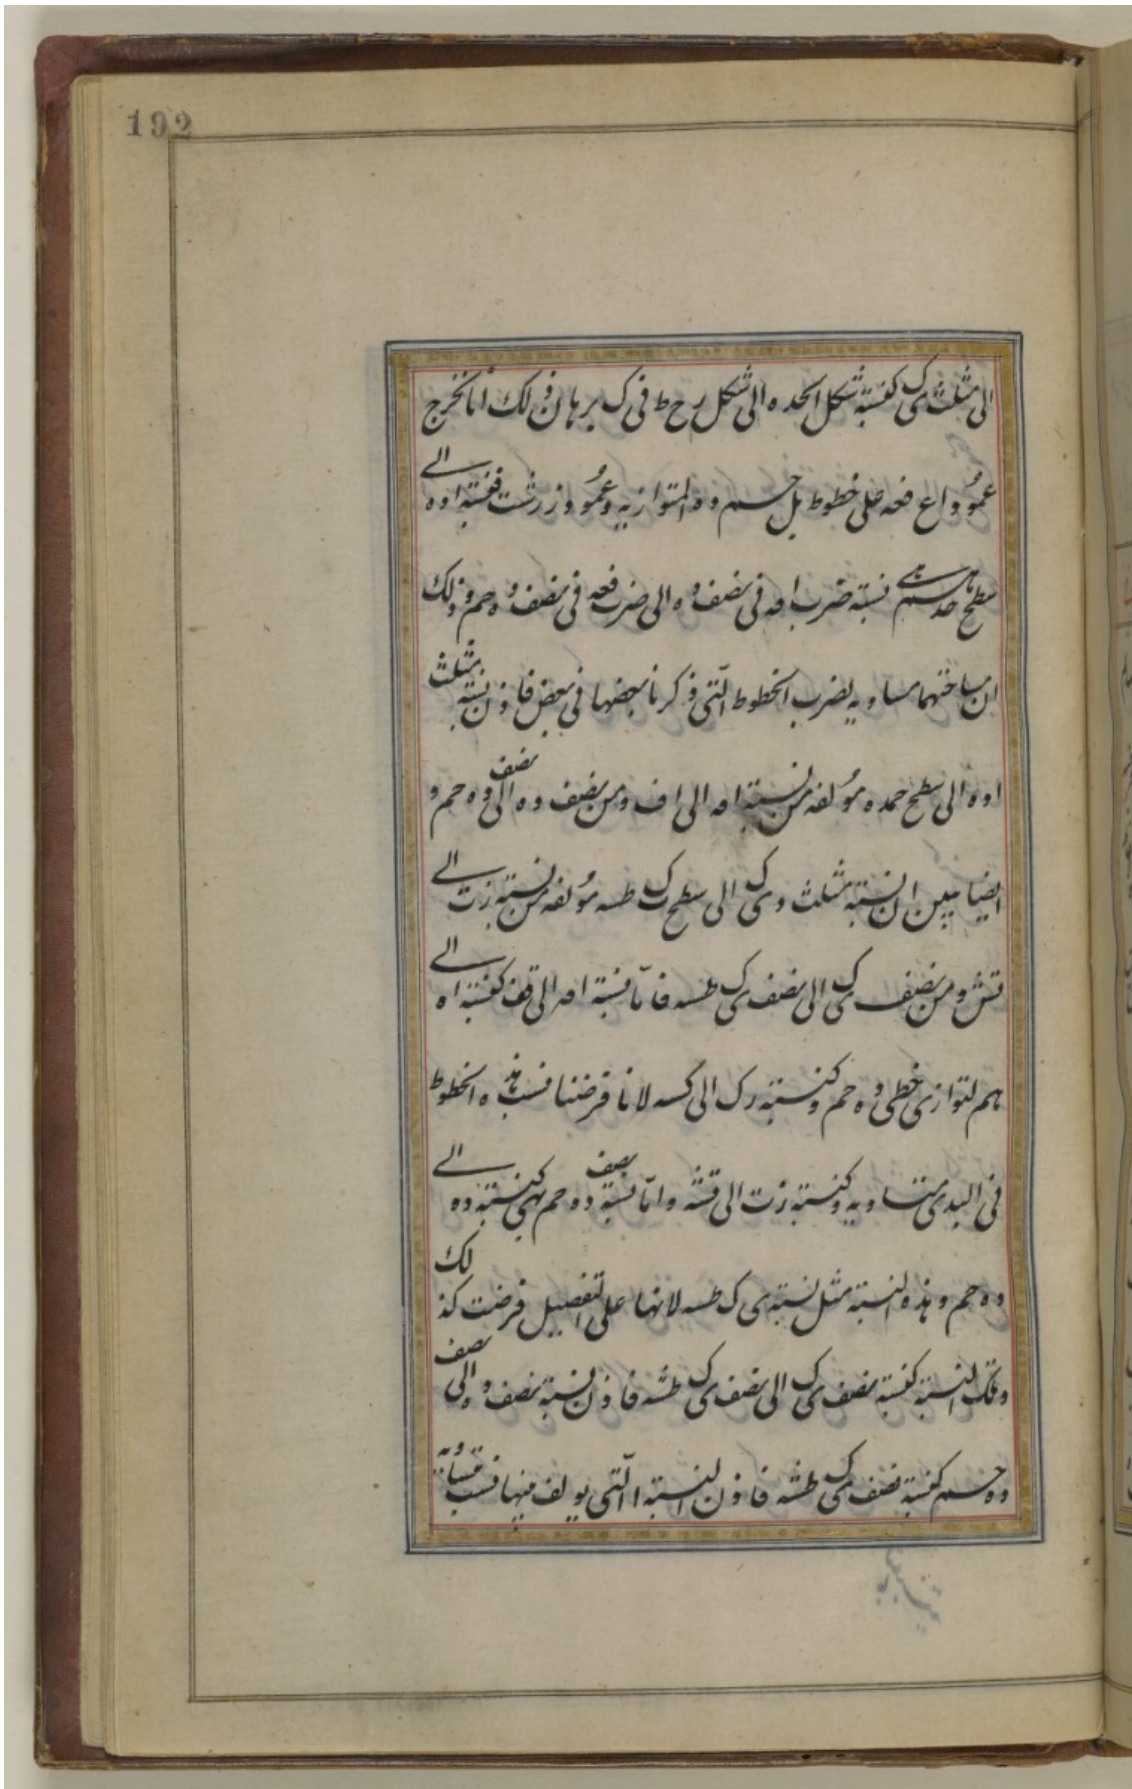 192
الى مثلث ی ک کنسبة شکل احده الى شکل رح ط فی ک برهان ذلک انا نخرج
عمود اع فعه على خطوط بل حم وه المتوازیه وعمود زرشت فنسبة اوه الى
سطح حده هی نسبة ضرب امه فی نصف وه الى ضرب فعه فی نصف وه حم وذلک
ان مساحتهما مساویه لضرب الخطوط الّتی ذکرنا بعضها فی بعض فاذن نسبة مثلث
اوه الى سطح حمده مؤلفه من نسبة امه الى اف ومن نصف وه الى نصف وه حم و
ایضا یبین ان نسبة مثلث وی ک الى سطح ک طسه مؤلفه من نسبة زت الى
قش ومن نصف ی ک الى نصف ی ک طسه فامّا نسبة امه الى قف کنسبة اه الى
هم لتوازی خطی وه حم وکنسبة رک الى کسه لانا فرضنا نسب هذه الخطوط
فی البدی متساویه وکنسبة زت الى قشه وامّا نسبة نصف وه حم فهی کنسبة وه الى
وه حم وهذه النسبة مثل نسبة ی ک طسه لانها على التفصیل فرضت کذلک
وتلک النسبة کنسبة نصف ی ک الى نصف ی ک طشه فاذن نسبة نصف وه الى نصف
وه حم کنسبة نصف ی ک طشه فاذن النسبة االّتی یولف منها نسب متساویه